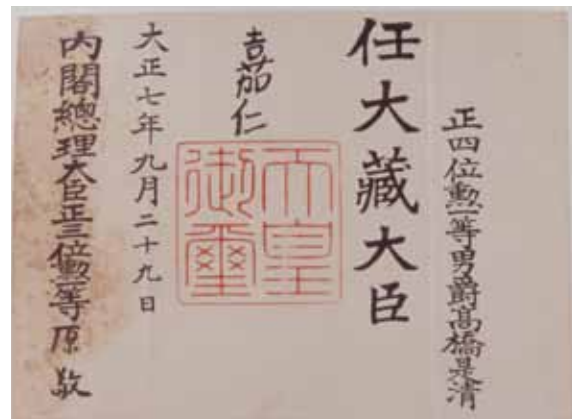 正四位勲一等男爵高橋是清
任大藏大臣
嘉仁
天皇御璽
大正七年九月二十九日
内閣總理大臣正三位勲一等原敬